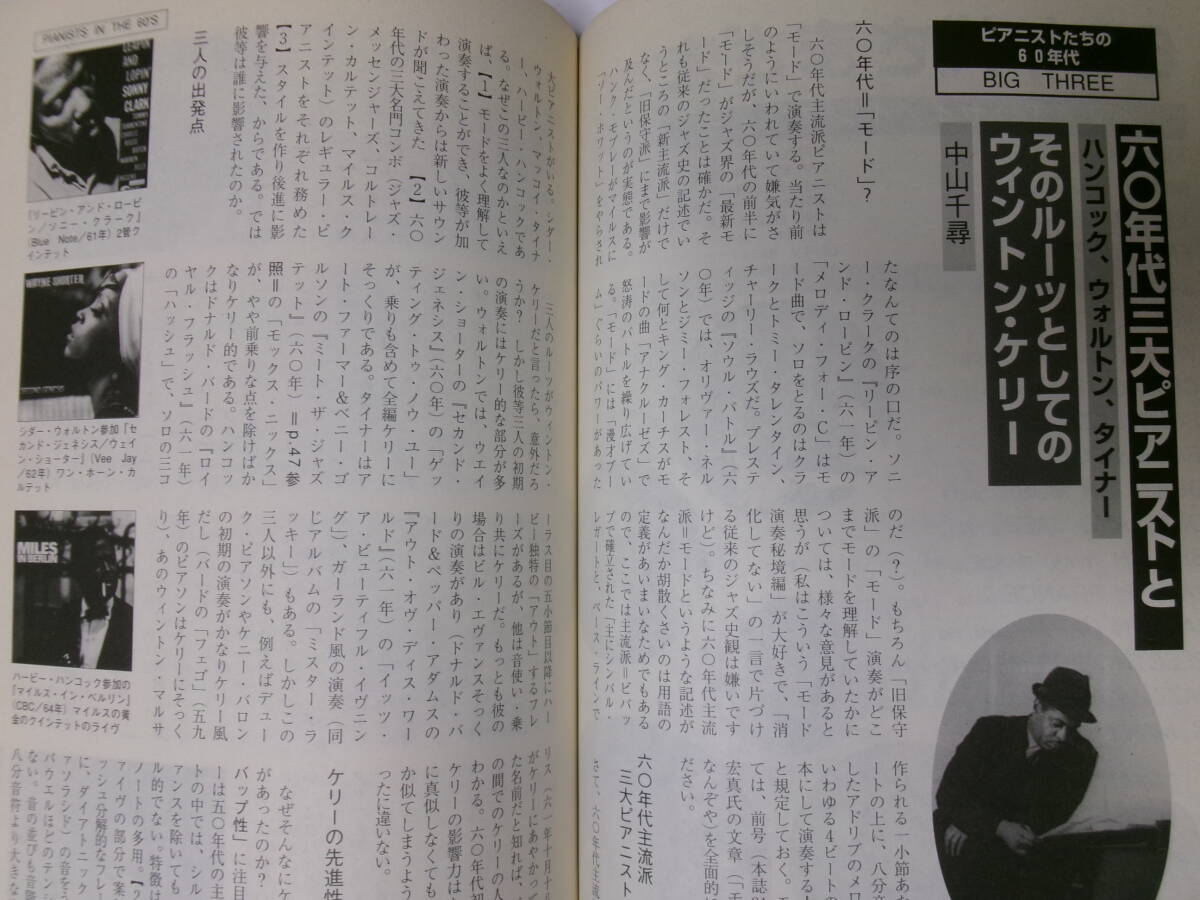 ピアニストたちの
60年代
BIG THREE
六〇年代三大ピアニストと
ハンコック、ウォルトン、タイナー
そのルーツとしての
ウィントン・ケリー
中山千尋
六〇年代＝「モード」？
六〇年代主流派ピアニストは
「モード」で演奏する。当たり前
のようにいわれていて嫌気がさ
しそうだが、六〇年代の前半に
「モード」がジャズ界の「最新モ
ード」だったことは確かだ。そ
れも従来のジャズ史の記述でい
うところの「新主流派」だけで
なく、「旧保守派」にまで影響が
及んだというのが実態である。
ハンク・モブレーがマイルスに
「ソー・ホワット」をやらされ
たなんてのは序の口だ。ソニ
ー・クラークの『リーピン・ア
ンド・ローピン』（六一年）の
「メロディ・フォー・C」はモ
ード曲で、ソロをとるのはクラ
ークとトミー・タレンタイン、
チャーリー・ラウズだ。プレステ
ィッジの『ソウル・バトル』（六
〇年）では、オリヴァー・ネル
ソンとジミー・フォレスト、そ
して何とキング・カーチスがモ
ードの曲「アナクルーゼズ」で
怒涛のバトルを繰り広げてい
る。「モード」には「漫才ブー
ム」ぐらいのパワーがあった
のだ（？）。もちろん「旧保守
派」の「モード」演奏がどこ
までモードを理解していたかに
ついては、様々な意見があると
思うが（私はこういう「モード
演奏秘境編」が大好きで、「消
化してない」の一言で片づけ
る従来のジャズ史観は嫌いです
けど）。ちなみに六〇年代主流
派＝モードというような記述が
なんだか胡散くさいのは用語の
定義があいまいなためでもある
ので、ここでは主流派＝ビバッ
プで確立された「主にシンバル・
レガートと、ベース・ラインで
作られる一小節あ
ートの上に、八分音
したアドリブのメロ
いわゆる4ビートの
本にして演奏する人
と規定しておく。モ
ては、前号（本誌
宏真氏の文章（「モ
なんぞや）を全面的
ださい。
六〇年代主流派
三大ピアニスト
さて、六〇年代主流
PIANISTS IN THE 60'S
大ピアニストがいる。シダー・
ウォルトン、マッコイ・タイナ
ー、ハービー・ハンコックであ
る。なぜこの三人なのかといえ
ば、【1】モードをよく理解して
演奏することができ、彼等が加
わった演奏からは新しいサウン
ドが聞こえてきた 【2】六〇
年代の三大名門コンボ（ジャズ・
メッセンジャーズ、コルトレー
ン・カルテット、マイルス・ク
インテット）のレギュラー・ピ
アニストをそれぞれ務めた
【3】スタイルを作り後進に影
響を与えた、からである。では
彼等は誰に影響されたのか。
三人の出発点
三人のルーツがウィントン・
ケリーだと言ったら、意外だろ
うか？ しかし彼等三人の初期
の演奏にはケリー的な部分が多
い。ウォルトンでは、ウエイ
ン・ショーターの『セカンド・
ジェネシス』（六〇年）の「ゲッ
ティング・トゥ・ノウ・ユー」
が、乗りも含めて全編ケリーに
そっくりである。タイナーはア
ート・ファーマー＆ベニー・ゴ
ルソンの『ミート・ザ・ジャズ
テット』（六〇年）＝p.47参
照＝の「モックス・ニックス」
が、やや前乗りな点を除けばか
なりケリー的である。ハンコッ
クはドナルド・バードの『ロイ
ヤル・フラッシュ』（六一年）
の「ハッシュ」で、ソロの三コ
ーラス目の五小節目以降にハー
ビー独特の「アウト」するフレ
ーズがあるが、他は音使い・乗
り共にケリーだ。もっとも彼の
場合はビル・エヴァンスそっく
りの演奏があり（ドナルド・バ
ード＆ペッパー・アダムスの
『アウト・オヴ・ディス・ワー
ルド』（六一年）の「イッツ・
ア・ビューティフル・イヴニン
グ」）、ガーランド風の演奏（同
じアルバムの「ミスター・ラ
ッキー」）もある。しかしこの
三人以外にも、例えばデュー
ク・ピアソンやケニー・バロン
の初期の演奏がかなりケリー風
だし（バードの『フェゴ』（五九
年）のピアソンはケリーにそっく
り）、あのウィントン・マルサ
リス（六一年十月十八
がケリーにあやかって
た名前だと知れば、
の間でのケリーの人
わかる。六〇年代初
ケリーの影響力は
に真似しなくても
か似てしまうよう
ったに違いない。
ケリーの先進性
なぜそんなにケ
があったのか？
バップ性」に注目
ーは五〇年代の主
トの中では、シル
アンスを除いても
ル的でない。特徴は
ノートの多用。【2
ァイヴの部分で案
ッシュ分解的なフレー
に、ダイアトニック
アソラシド）の音をう
パウエルほどのテンシ
ない。音の並びも音階
八分音符より大きな
『リーピン・アンド・ローピ
ン／ソニー・クラーク』
(Blue Note／61年) 2管ク
インテット
シダー・ウォルトン参加『セ
カンド・ジェネシス／ウェイ
ン・ショーター』(Vee Jay
／62年) ワン・ホーン・カ
ルテット
ハービー・ハンコック参加の
『マイルス・イン・ベルリン』
(CBC／64年) マイルスの黄
金のクインテットのライヴ
LEAPIN'
AND
LOPIN'
SONNY
CLARK
WAYNE SHORTER
SECOND GENESIS
MILES
IN BERLIN